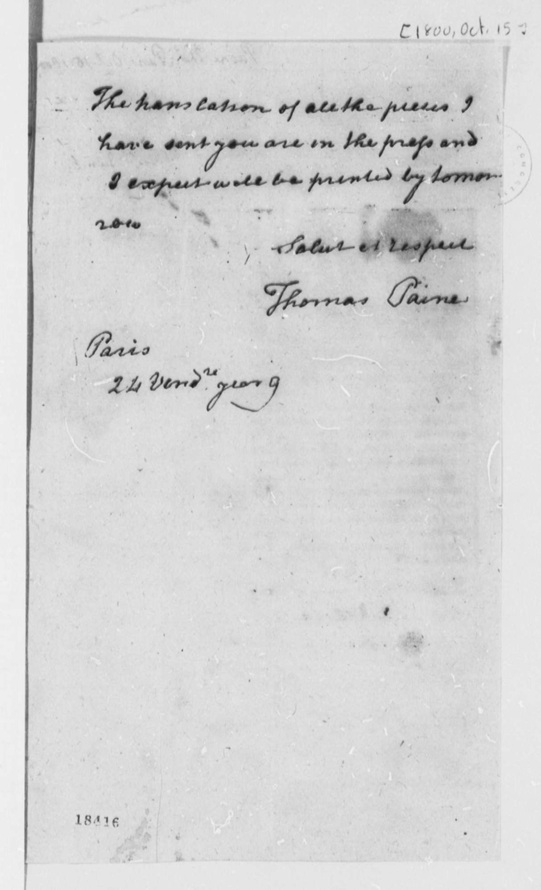 [1800, Oct. 15]
The translation of all the pieces I
have sent you are in the press and
I expect will be printed by tomor
row
Salut et respect
Thomas Paine
Paris
24 Vend.re year 9
18416